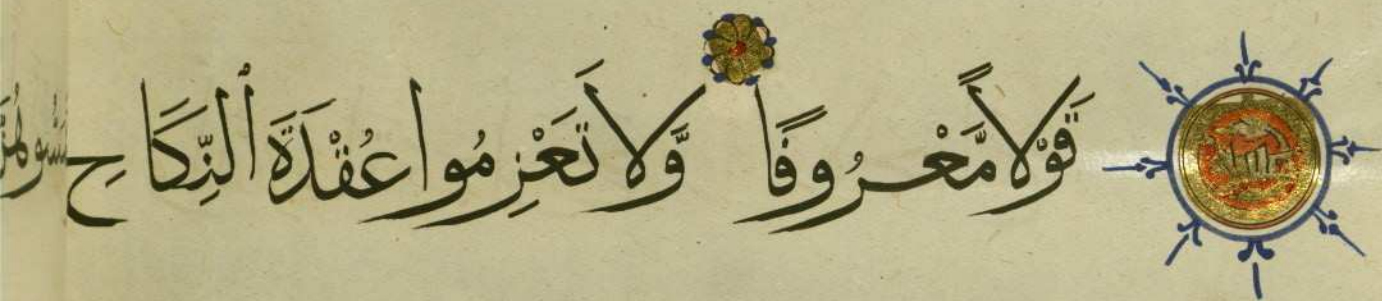 قَوْلاً مَّعْرُوفًا وَّلَا تَعْزِمُوا عُقْدَةَ ٱلنِّكَاحِ